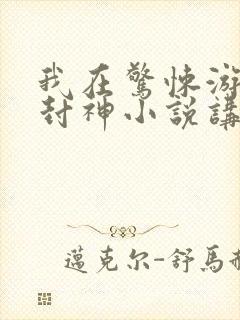 我在驚悚游
封神小説講
邁克尔-舒馬赫